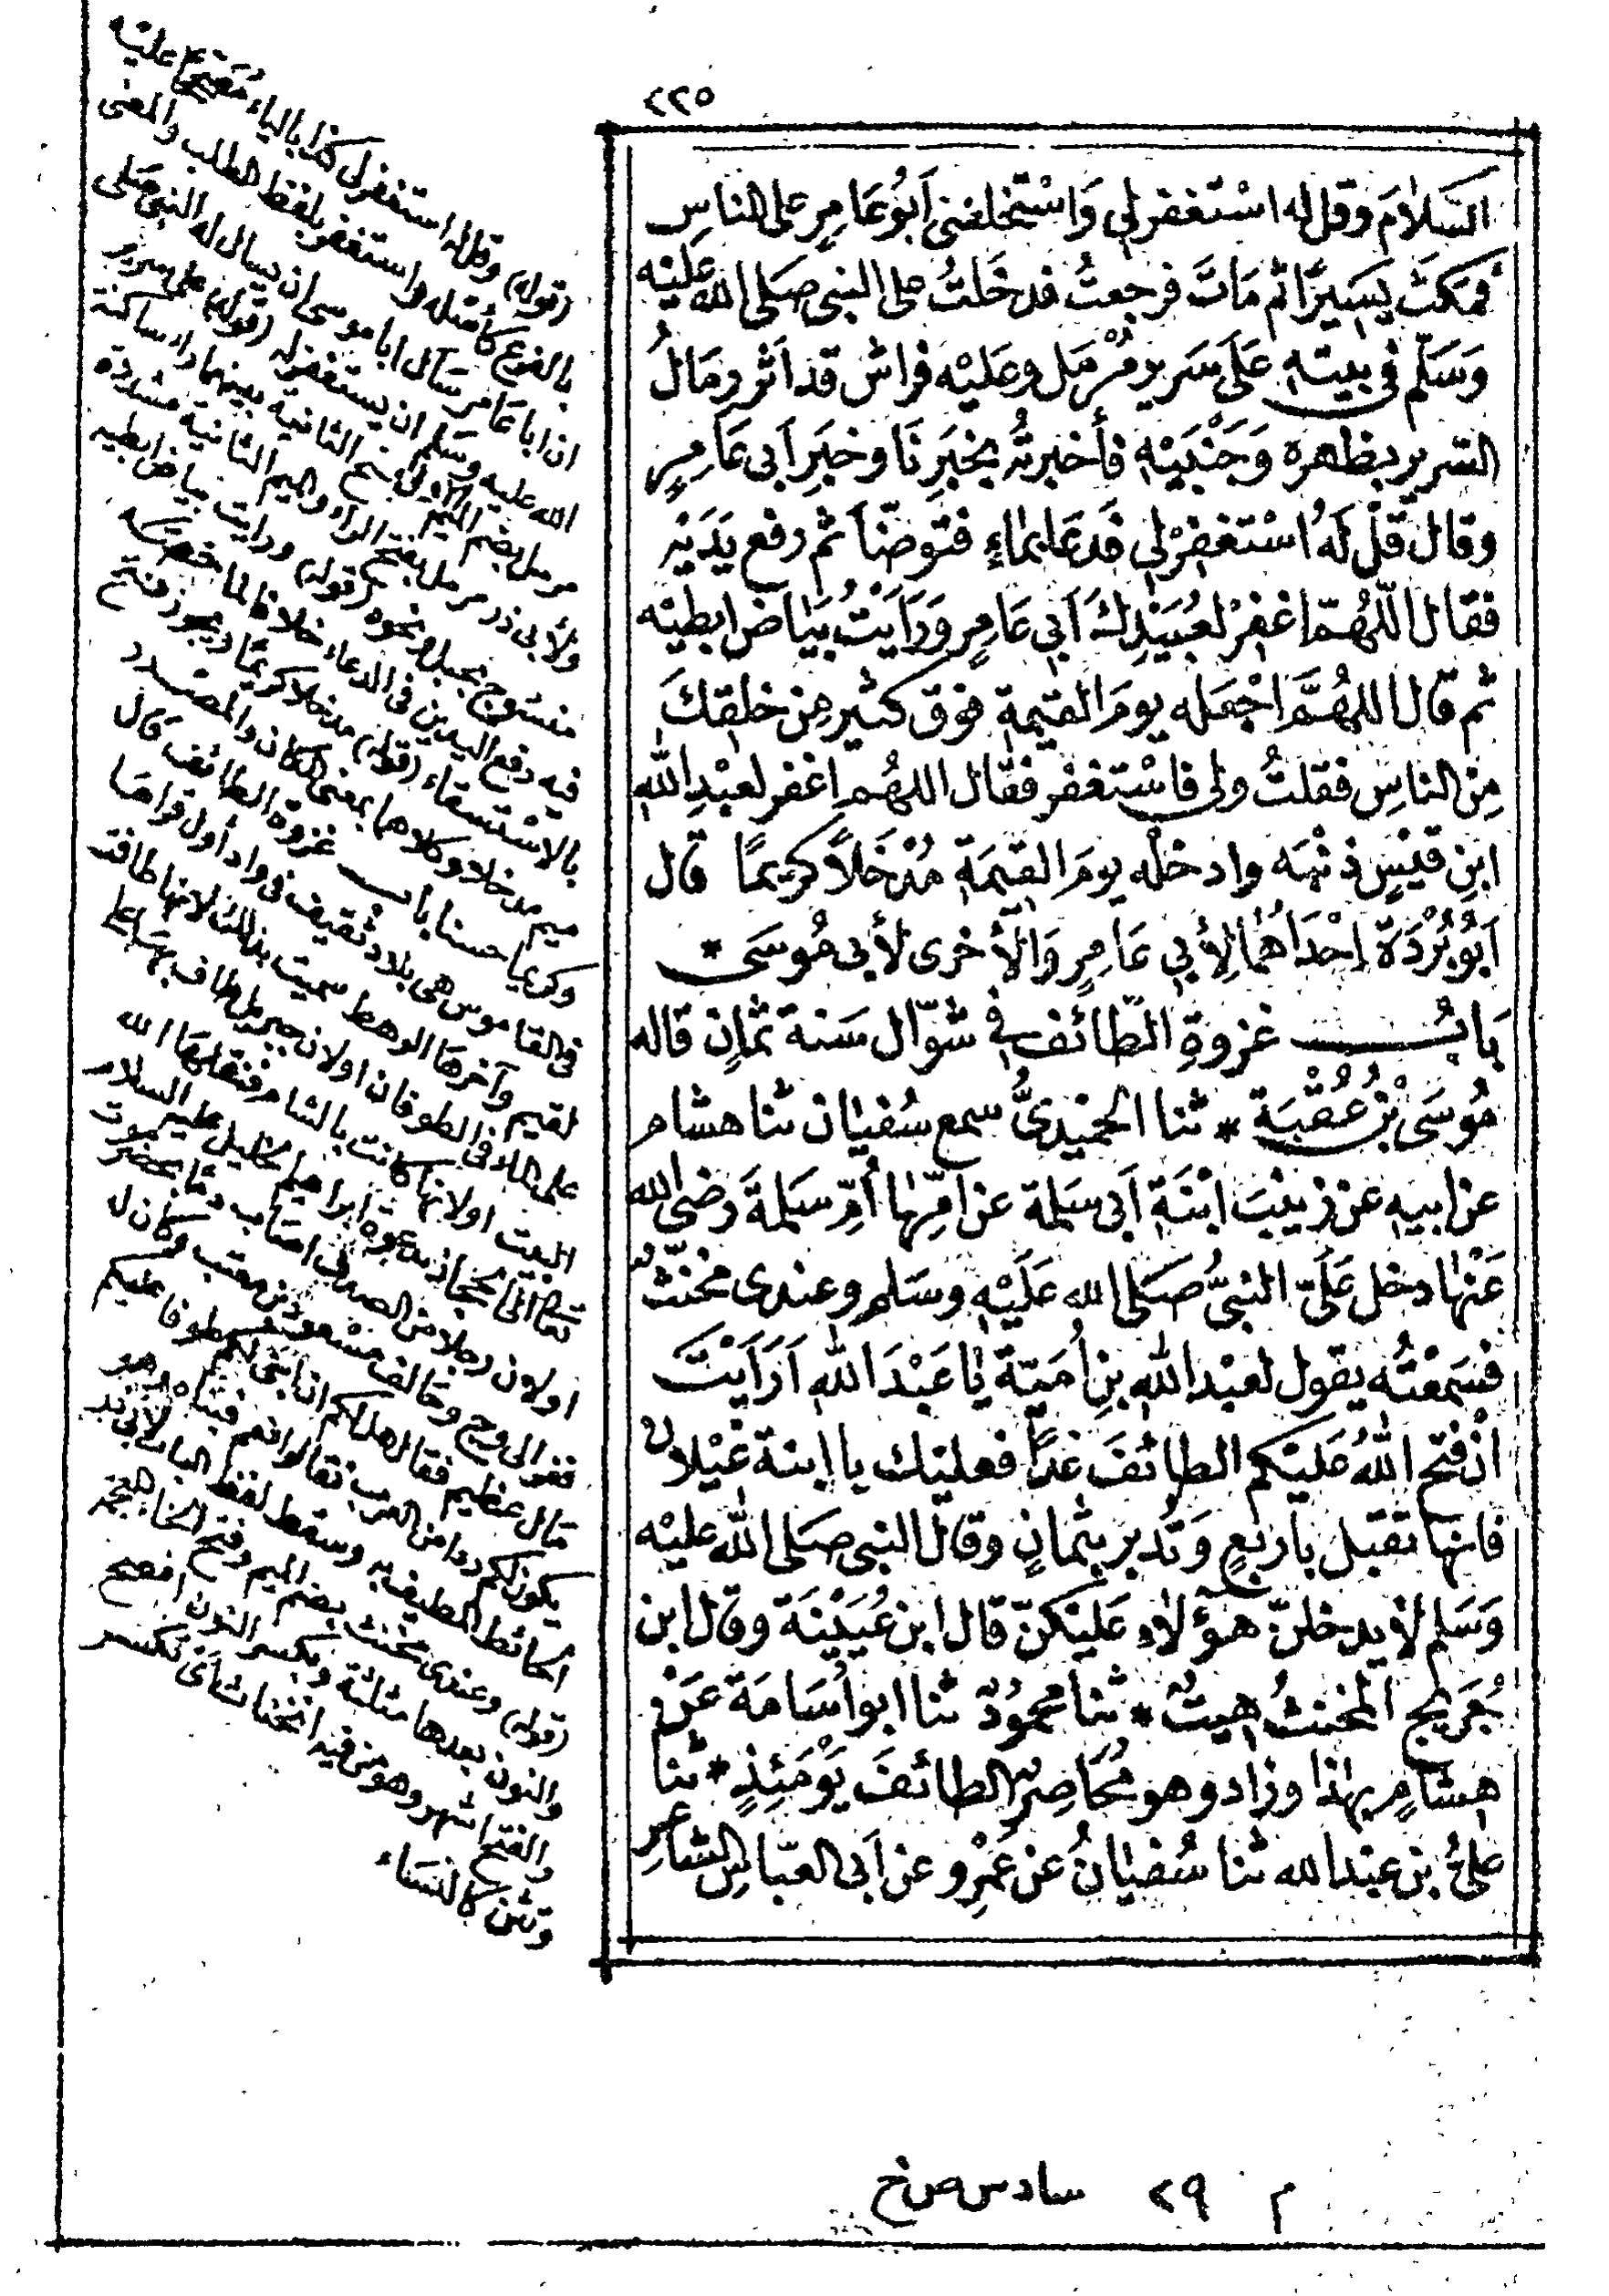 ٢٢٥
السَلاٰمَ وقل له اسْتغفر لي وَاسْتخلفنى اَبُو عَامِرٍ على الناس
فمكَثَ يَسِيرًا ثم مَاتَ فرجعتُ فدخَلتُ على النبى صَلى الله عَلَيْه
وَسَلّم فى بيته عَلَى سَرير مُرْمَل وعَليْه فراش قد اَثر رمَالُ
السّرير بظهره وَجَنْبَيْهِ فأخبرتُه بخَبَرِنَا وخبَرِ اَبى عَامِرٍ
وقال قلْ لَهُ اسْتغفِرْ لى فَدعَا بماءٍ فتوضّأ ثم رفع يَدَيْهِ
فقال اللّهُمّ اغفِرْ لعُبَيْدِكَ اَبى عَامِرٍ وَرَاَيْتُ بَيَاضَ ابطيْه
ثم قال اللهُمَّ اجْعَله يومَ القيمةِ فوق كثيرٍ مِن خلقِكَ
مِنَ الناسِ فقلتُ ولى فاسْتغفر فقال اللهُم اغفر لعبْدِ اللهِ
ابنِ قيْسٍ ذنبَه وادخلْه يومَ القيمَةِ مُدْخَلاً كريمًا قال
اَبُو بُرْدَةَ اِحْدَاهُمَا لِأبِي عَامِرٍ وَالْأخرى لأبى مُوسَى *
بَابُ غزوةِ الطّائف فى شوّال سَنة ثمانٍ قاله
مُوسَى بْنُ عُقْبَة * ثنا الحُمَيْدِىُّ سمع سُفيٰان ثنا هشام
عن ابيهِ عن زينبَ ابْنَةِ اَبى سَلمة عن اُمِّهٰا أمِّ سَلمَةَ رضى الله
عَنْهٰا دخل عَلَىّ النبىُّ صَلى الله عَلَيْهِ وسَلم وعندى مخنّثٌ
فسَمعْتُه يقول لعبْد اللهِ بنِ اُمَيّة يٰا عَبْدَ اللهِ اَرَاَيْتَ
انْ فتح اللهُ عَليْكم الطائفَ غدًا فعليْك باابنة غيْلان
فانها تقبل باربَعٍ وَتُدبر بثمانٍ وقال النبى صَلى الله عليْه
وَسَلم لا يدخلنّ هؤلاءِ عَليْكنّ قال ابن عُيَيْنَة وقال ابن
جُرَيج المخنثُ هيتٌ * ثنا محمُودٌ ثنا ابو اُسَامَة عَنْ
هِشامٍ بهٰذا وزاد وهو مُحَاصِرُ الطائفَ يَوْمَئِذٍ * ثنا
علىّ بن عبْد الله ثنا سُفيٰانُ عن عَمْرٍو عن اَبى العبّاسِ الشاعِرِ
(قوله) وقل له استغفر لى كذا بالياء مصححا عليه
بالفرع كأمثله واستغفر بلفظ الطلب والمعنى
ان ابا عامر سأل ابا موسى ان يسأل له النبى صلى
الله عليه وسلم ان يستغفر له (قوله) على سرير
مرمل بضم الميم الاولى وفتح الثانية بينهما راء ساكنة
ولأبى ذر مرمل بفتح الراء والميم الثانية مشددة
منسوج بحبل ونحوه (قوله) ورايت بياض ابطيه
فيه رفع اليدين فى الدعاء خلافا لمن خصه
بالاستسقاء (قوله) مدخلا كريما ويجوز فتح
ميم مدخلا وكلاهما بمعنى المكان والمصدر
وكريما حسنا باب غزوة الطائف قال
فى القاموس هى بلاد ثقيف فى واد أول قراها
لقيم وآخرها الوهط سميت بذلك لانها طافت
على الماء فى الطوفان اولان جبريل طاف بها على
البيت اولانها كانت بالشام فنقلها الله
تعالى الى الحجاز بدعوة ابراهيم الخليل عليه السلام
اولان رجلا من الصدف اصاب دما بحضرموت
ففر الى وج وحالف مسعود بن معتب وكان له
مال عظيم فقال هل لكم ان ابنى لكم طوفا عليكم
يكون لكم ردءا من العرب فقالوا نعم فبناه وهو
الحائط المطيف به وسقط لفظ الباب لأبى ذر
(قوله) وعندى مخنث بضم الميم وفتح الخاء المعجمة
والنون بعدها مثلثة وبكسر النون افصح
والفتح اشهر وهو من فيه انخناث أى تكسر
وتثن كالنساء
م ٢٩ سادس ص خ